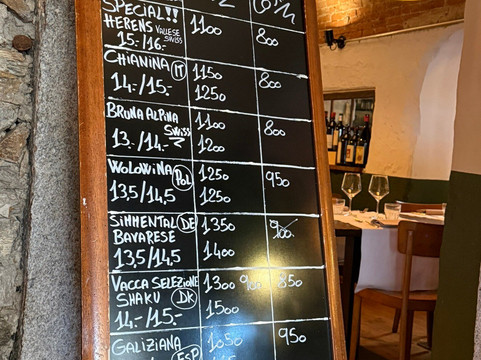 SPECIAL!!
HERENS VALLESE SWISS
15.-/16.-
1100
800
CHIANINA IT
14.-/15.-
1150
1250
800
BRUNA ALPINA
SWISS
13.-/14.-
1100
1200
800
WOLOWINA POL
13,5/14,5
1250
1250
950
SIMMENTAL DE
BAVARESE
13,5/14,5
1350
1400
900
VACCA SELEZIONE
SHAKU DK
14.-/15.-
1300
1500
850
GALIZIANA
ESP
1050
950